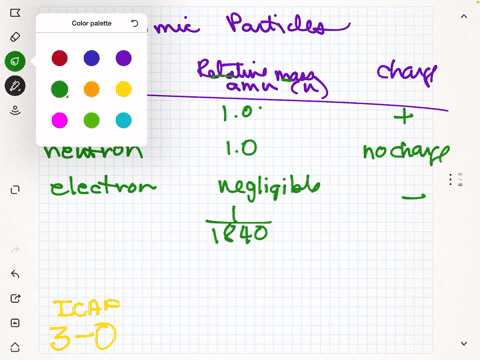 Color palette
mic Particles
Relative mass charge
amu (u)
1.0 +
neutron 1.0 no charge
electron negligible −
1
1840
ICAF
3-0